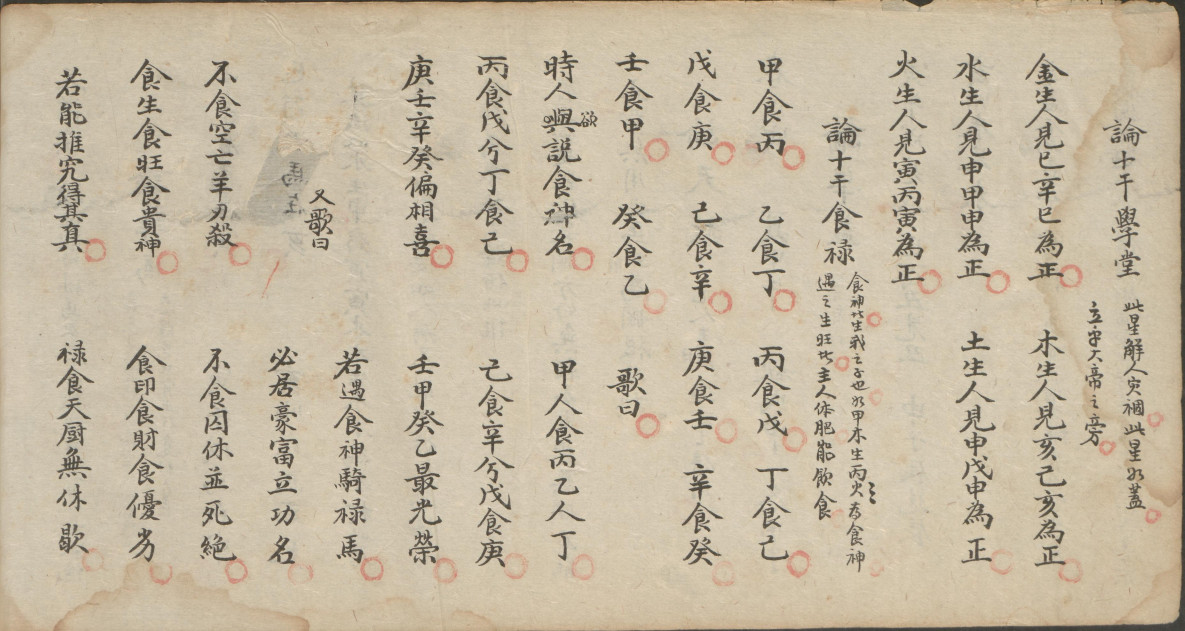 論十干學堂 此星解人灾禍此星如蓋
立玉大帝之旁
金生人見巳辛巳為正 木生人見亥己亥為正
水生人見申甲申為正 土生人見申戊申為正
火生人見寅丙寅為正
論十干食祿 食神者生我之子也如甲木生丙火火為食神
遇之生旺者主人体肥能飲食
甲食丙 乙食丁 丙食戊 丁食己
戊食庚 己食辛 庚食壬 辛食癸
壬食甲 癸食乙 歌曰
時人欲說食神名 甲人食丙乙人丁
丙食戊兮丁食己 己食辛兮戊食庚
庚壬辛癸偏相喜 壬甲癸乙最光榮
又歌曰 若遇食神騎祿馬
必居豪富立功名
不食空亡羊刃殺 不食囚休並死絕
食生食旺食貴神 食印食財食優劣
若能推究得其真 祿食天厨無休歇